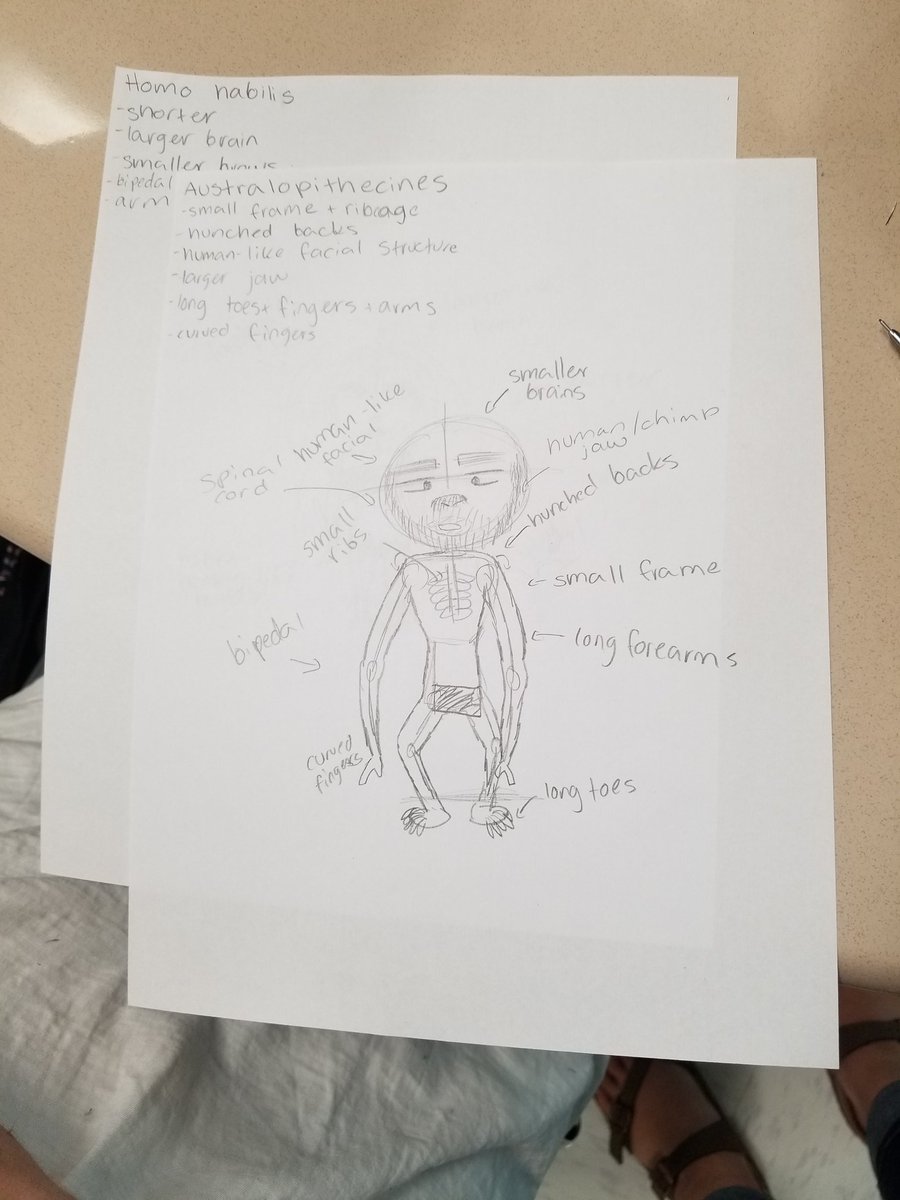 Homo habilis
-shorter
-larger brain
-smaller brows
-bipedal
-arm
Australopithecines
-small frame + ribcage
-hunched backs
-human-like facial structure
-larger jaw
-long toes+ fingers + arms
-curved fingers
smaller
brains
human-like
facial
human/chimp
jaw
spinal
cord
hunched backs
small
ribs
small frame
bipedal
long forearms
curved
fingers
long toes